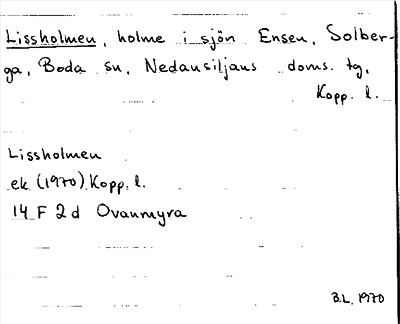 Lissholmen, holme i sjön Ensen, Solber-
ga, Boda sn, Nedansiljans doms. tg,
Kopp. l.
Lissholmen
ek (1970) Kopp. l.
14 F 2 d Ovanmyra
B.L. 1970